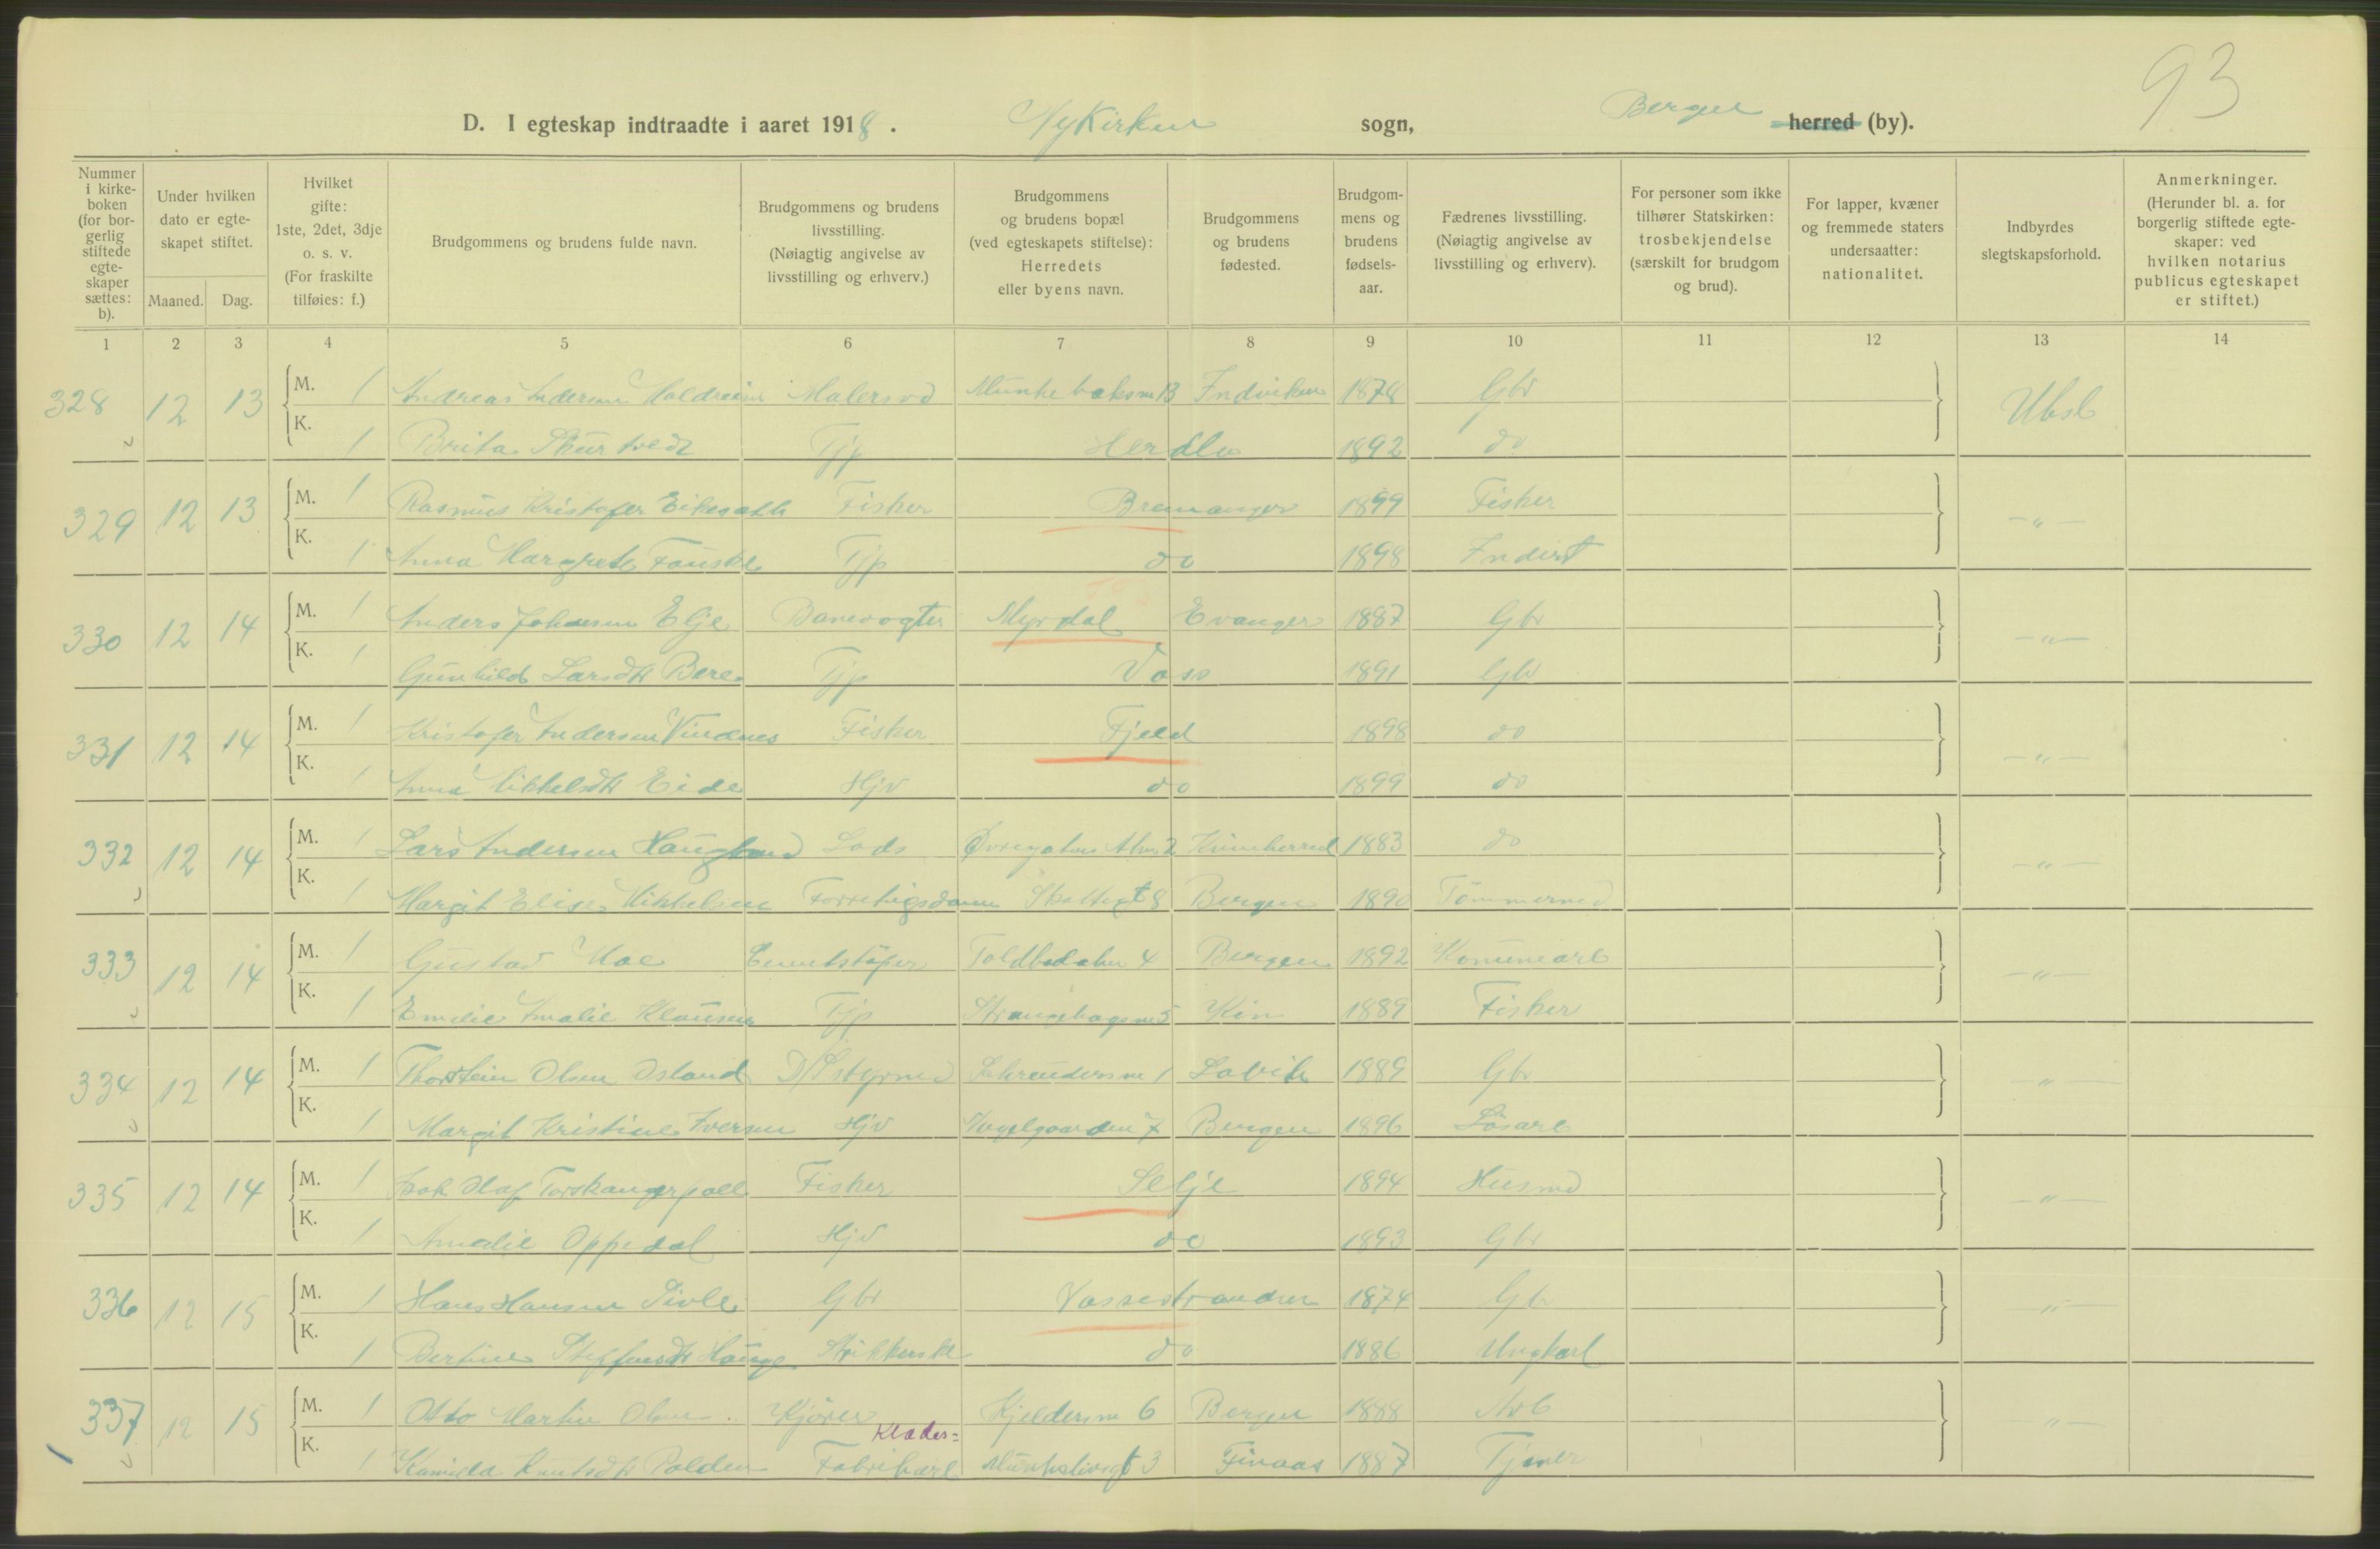 93
D. I egteskap indtraadte i aaret 1918. Nykirken sogn, Bergen herred (by).
Nummer i kirkeboken (for borgerlig stiftede egteskaper sættes: b).
Under hvilken dato er egteskapet stiftet.
Maaned. Dag.
Hvilket gifte: 1ste, 2det, 3dje o. s. v. (For fraskilte tilføies: f.)
Brudgommens og brudens fulde navn.
Brudgommens og brudens livsstilling. (Nøiagtig angivelse av livsstilling og erhverv.)
Brudgommens og brudens bopæl (ved egteskapets stiftelse): Herredets eller byens navn.
Brudgommens og brudens fødested.
Brudgommens og brudens fødselsaar.
Fædrenes livsstilling. (Nøiagtig angivelse av livsstilling og erhverv).
For personer som ikke tilhører Statskirken: trosbekjendelse (særskilt for brudgom og brud).
For lapper, kvæner og fremmede staters undersaatter: nationalitet.
Indbyrdes slegtskapsforhold.
Anmerkninger. (Herunder bl. a. for borgerlig stiftede egteskaper: ved hvilken notarius publicus egteskapet er stiftet.)
1 2 3 4 5 6 7 8 9 10 11 12 13 14
328 12 13 M. 1 Andreas Andersen Malersvd 13 Indviken 1878 Gbr Ubsl
K. 1 Brita Tjp Herdla 1892 do
329 12 13 M. 1 Rasmus Kristofer Fisker Bremanger 1899 Fisker -"-
K. 1 Anna Margrete Fauske Tjp do 1898 Inderst
330 12 14 M. 1 Anders Johansen Elje Banevogter Myrdal Evanger 1887 Gbr -"-
K. 1 Gunhild Larsdtr Bere Tjp Voss 1891 Gbr
331 12 14 M. 1 Kristofer Andersen Vindnes Fisker Fjeld 1898 do -"-
K. 1 Anna Mikkelsdtr Eide Hjv do 1899 do
332 12 14 M. 1 Lars Andersen Haugland Lods Øvregatens Alm 2 Kvinherred 1883 do -"-
K. 1 Margit Elise Mikkelsen Skottegt 8 Bergen 1890 Tømmermd
333 12 14 M. 1 Gustav Moe Cementstøper Toldbodalm 4 Bergen 1892 Komunearb -"-
K. 1 Emilie Amalie Klausen Tjp Strangehagen 5 Kin 1889 Fisker
334 12 14 M. 1 Thorstein Olsen Osland D/S styrmd 1 Lavik 1889 Gbr -"-
K. 1 Margit Kristine Iversen Hjv 7 Bergen 1896 Løsarb
335 12 14 M. 1 Olaf Torskangerpoll Fisker Selje 1894 Husmd -"-
K. 1 Amalie Oppedal Hjv do 1893 Gbr
336 12 15 M. 1 Hans Hansen Tivle Gbr Vossestranden 1874 Gbr -"-
K. 1 Bertine Steffensdtr Hauge Strikkerske do 1886 Ungkarl
337 12 15 M. 1 Otto Martin Olsen Kjører Kjeldersm 6 Bergen 1888 Arb -"-
Klæder=
K. 1 Kamilla Knutsdtr Fabrikarb 3 Finaas 1887 Tjener